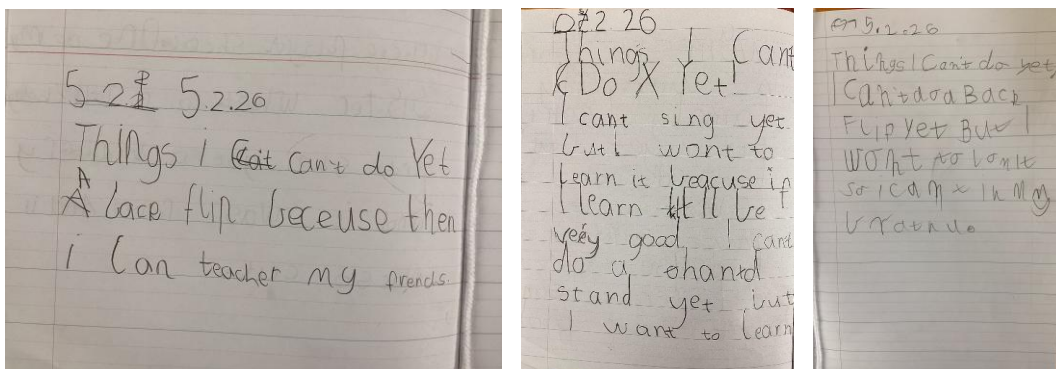 5 2 5.2.26
Things i can't do Yet
A bace flip beceuse then
i Can teacher my frends.
2 26
Things I Cant
Do X Yet!
I cant sing yet
but I wont to
Learn it beacuse if
I learn it I'll be
very good I cant
do a hand
stand yet but
I want to learn
5.2.26
Things I Can't do yet
I Can't do a Back
FLip Yet But I
wont to
so I can in my